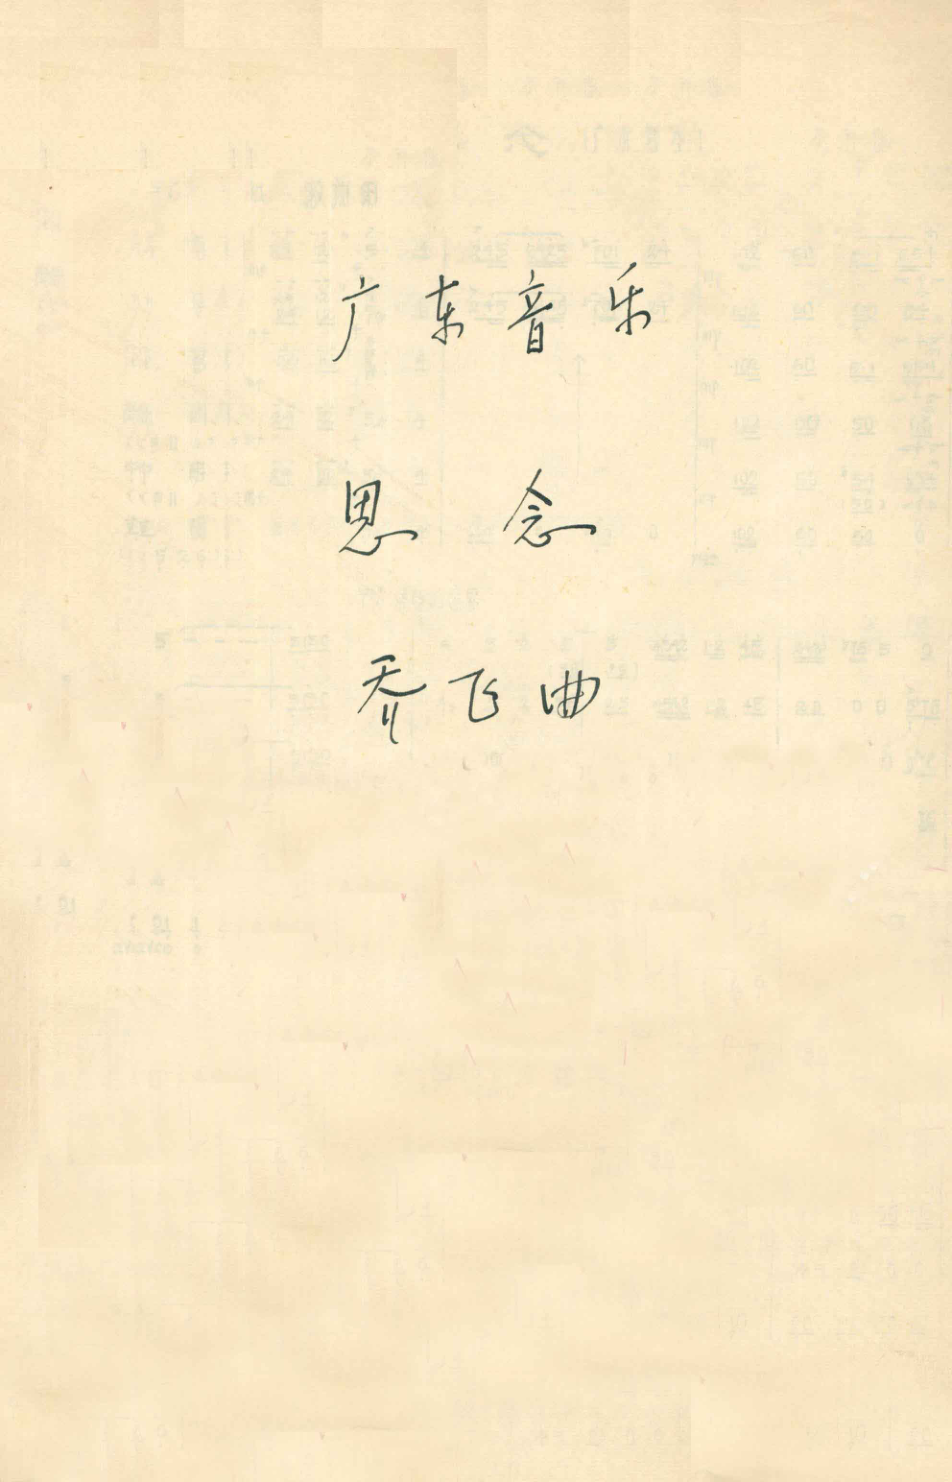 广东音乐
思念
乔飞曲